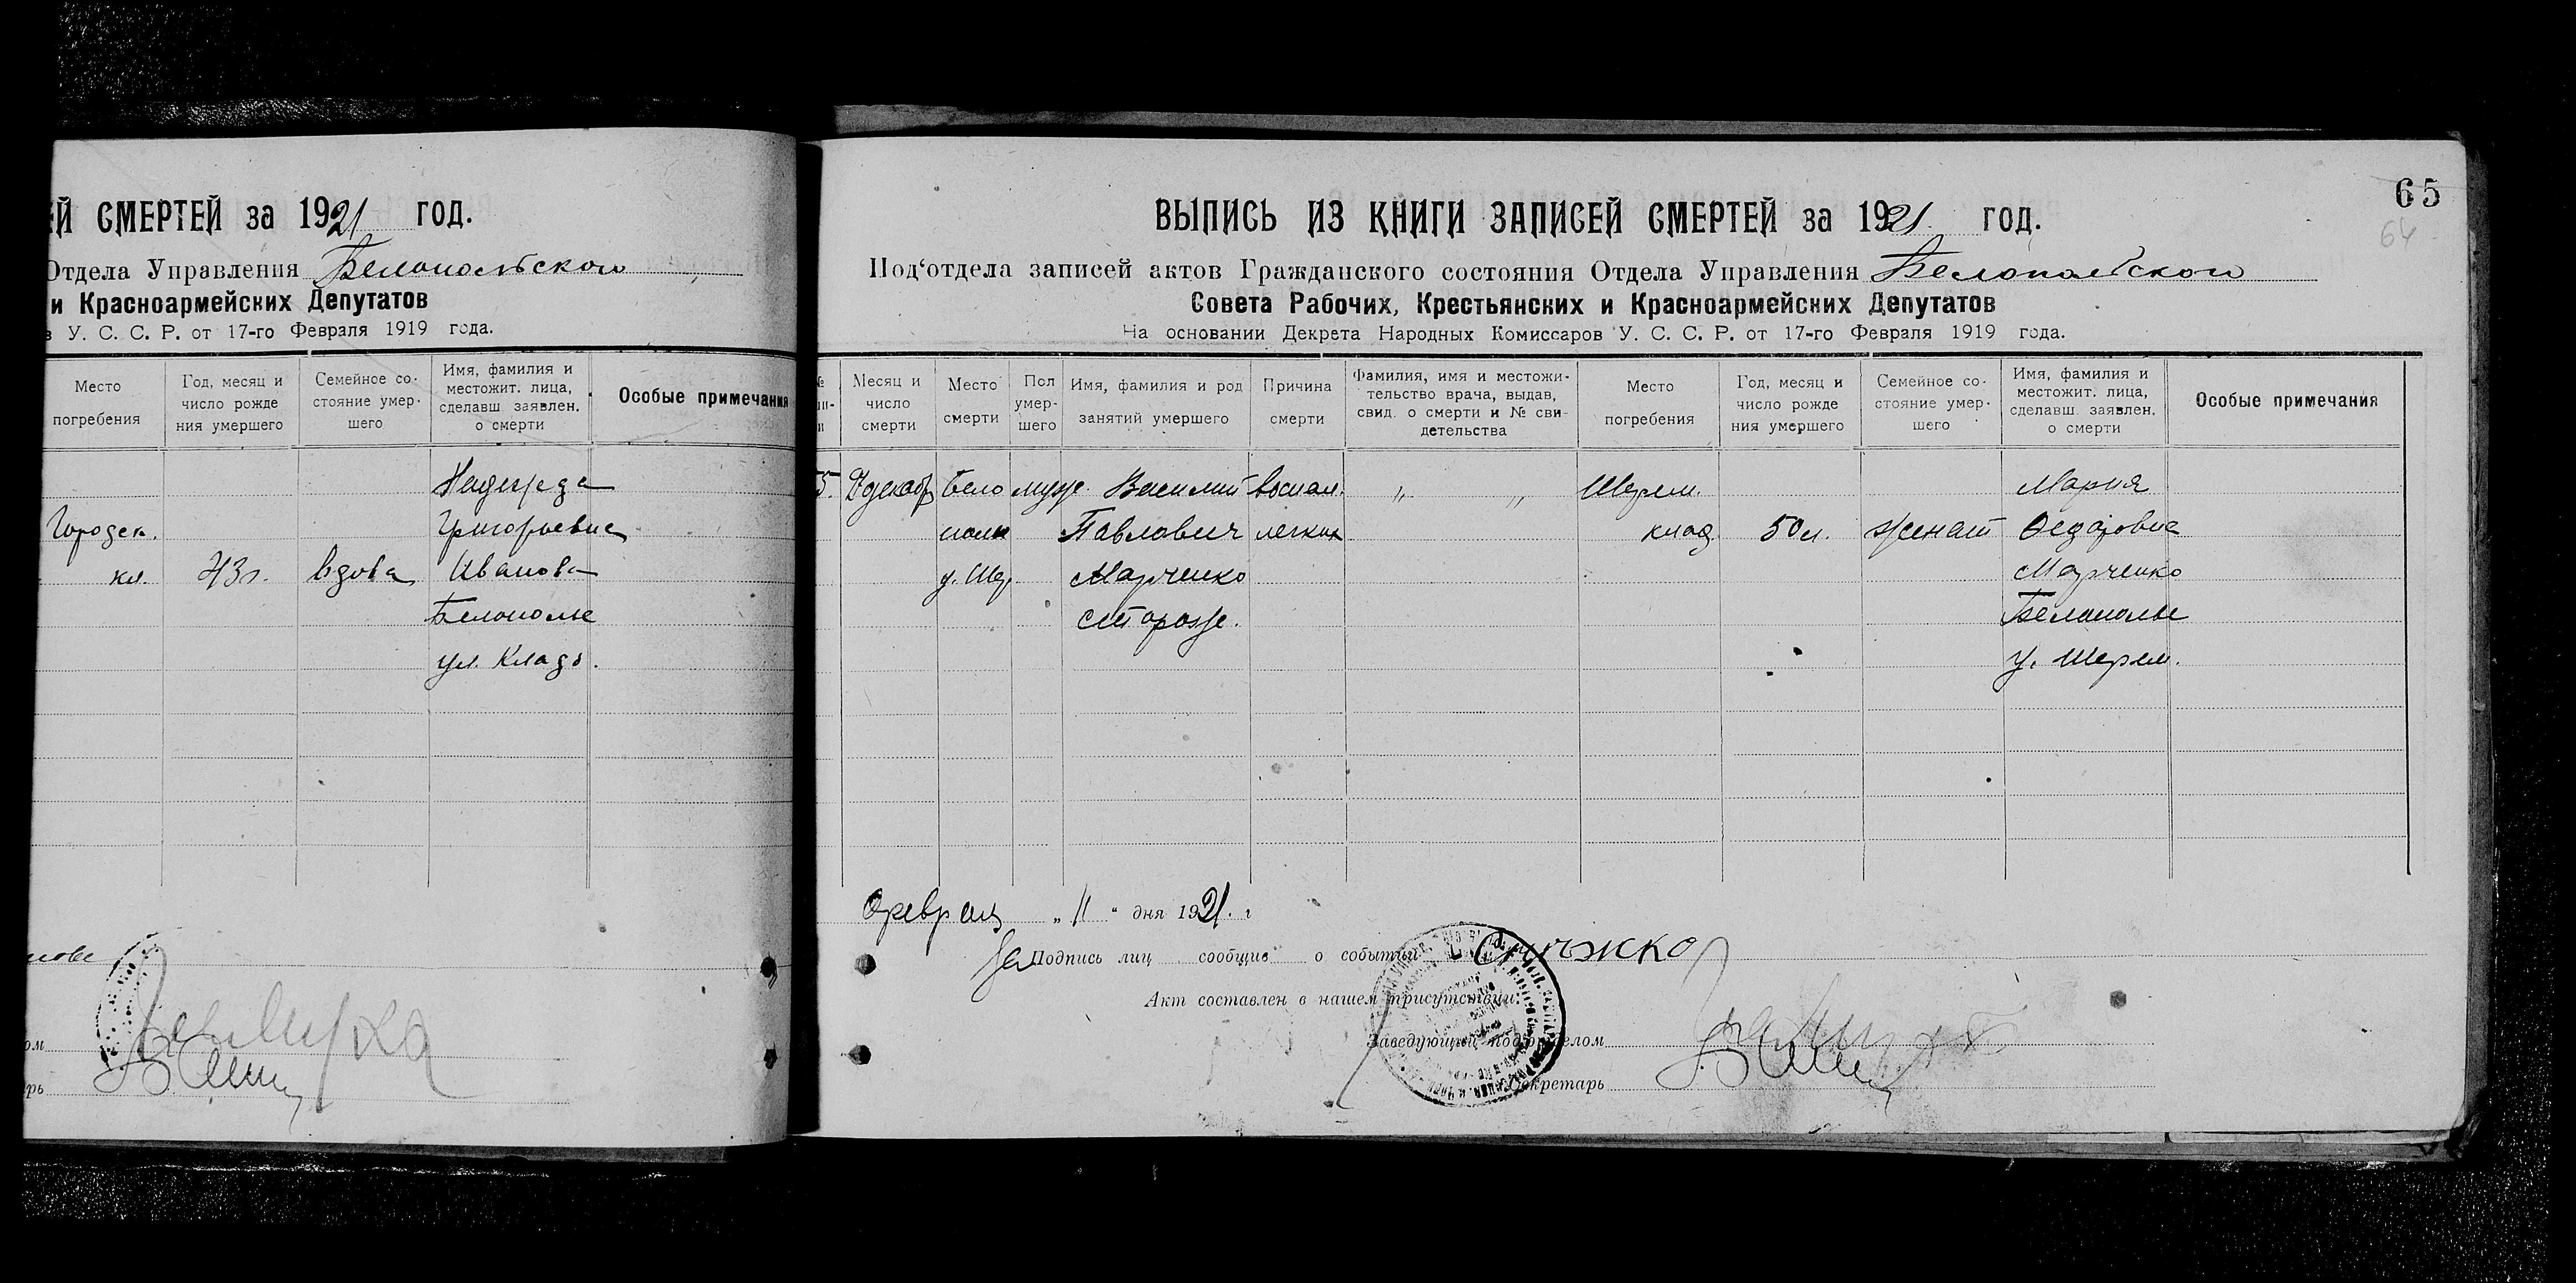 ЕЙ СМЕРТЕЙ за 1921 ГОД.
Отдела Управления Белопольского
и Красноармейских Депутатов
в У. С. С. Р. от 17-го Февраля 1919 года.
Место погребения
Год, месяц и число рожде ния умершего
Семейное со- стояние умер- шего
Имя, фамилия и местожит. лица, сделавш заявлен. о смерти
Особые примечания
Надежда
Городск. Григорьевна
кл. 43г. вдова Иванова
Белополье
ул. Кладб.
65
64
ВЫПИСЬ ИЗ КНИГИ ЗАПИСЕЙ СМЕРТЕЙ за 1921 ГОД.
Под‘отдела записей актов Гражданского состояния Отдела Управления Белопольского
Совета Рабочих, Крестьянских и Красноармейских Депутатов
На основании Декрета Народных Комиссаров У. С. С. Р. от 17-го Февраля 1919 года.
Месяц и число смерти
Место смерти
Пол умер- шего
Имя, фамилия и род занятий умершего
Причина смерти
Фамилия, имя и местожи- тельство врача, выдав, свид. о смерти и № сви- детельства
Место погребения
Год, месяц и число рожде ния умершего
Семейное со- стояние умер- шего
Имя, фамилия и местожит. лица, сделавш. заявлен. о смерти
Особые примечания
5. декабр Бело муж. Василий воспал. „ „ Шерем. Мария
поль Павлович легких клад 50 л. женат Федоровна
у. Шер. Марченко Марченко
Сторож. Белополье
у. Шерем.
Февраля „11“ дня 1921. г
За Подпись лиц сообщив о событии
Акт составлен в нашем присутствии:
Заведующий подотделом
Секретарь